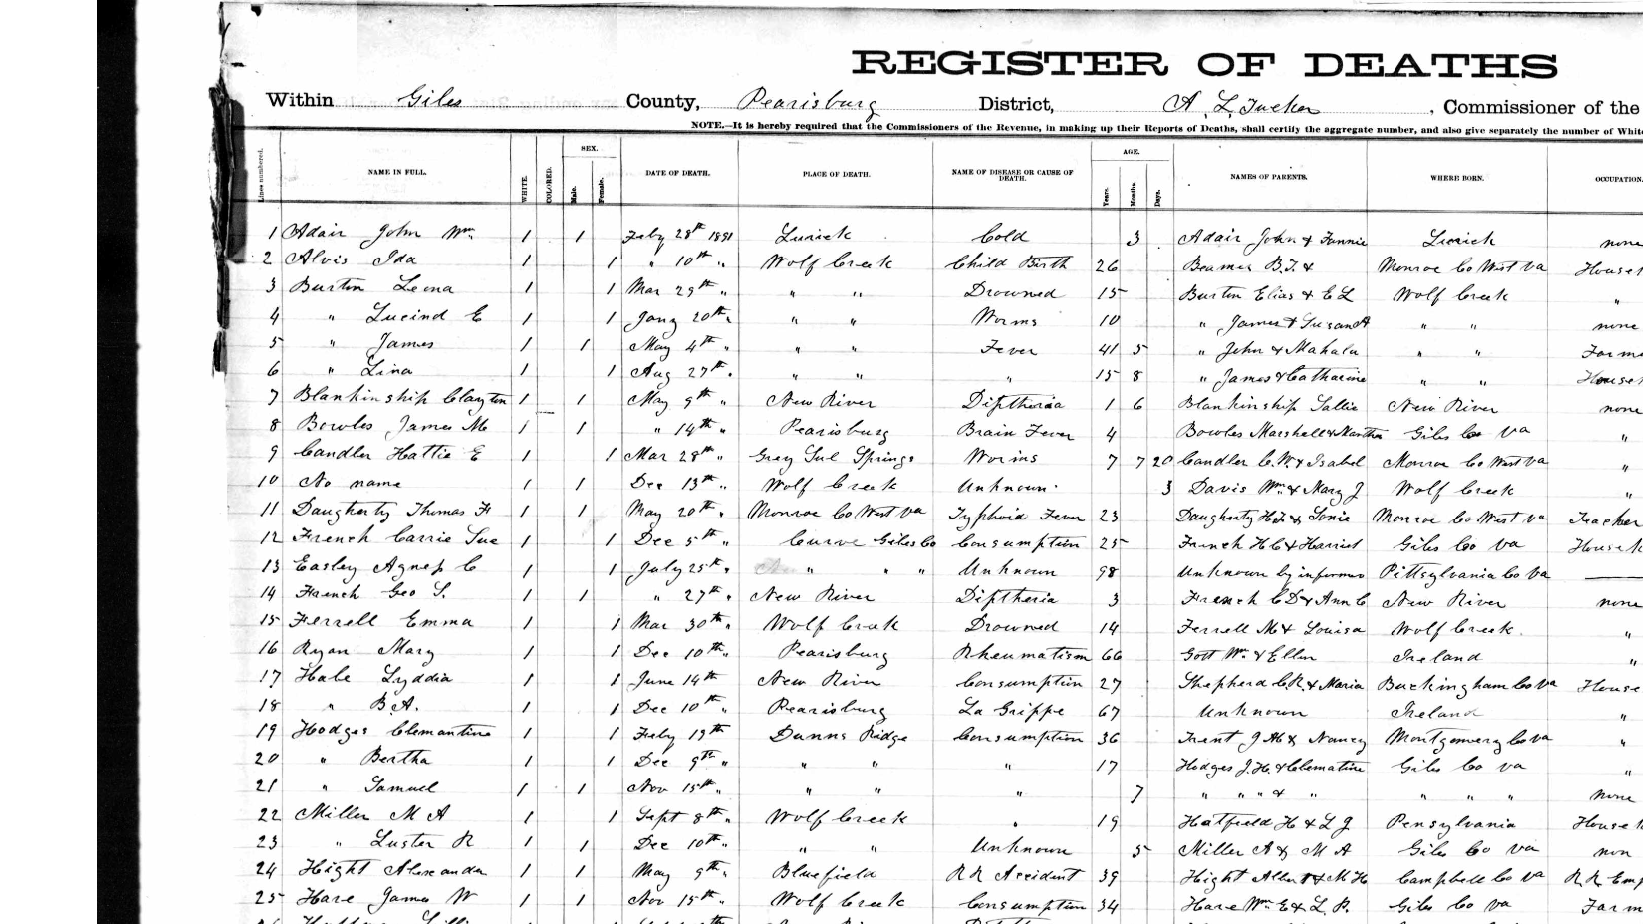 REGISTER OF DEATHS
Within Giles County, Pearisburg District, A. L. Tucker, Commissioner of the
NOTE.—It is hereby required that the Commissioners of the Revenue, in making up their Reports of Deaths, shall certify the aggregate number, and also give separately the number of White
Lines numbered. NAME IN FULL. WHITE. COLORED. SEX. Male. Female. DATE OF DEATH. PLACE OF DEATH. NAME OF DISEASE OR CAUSE OF DEATH. AGE. Years. Months. Days. NAMES OF PARENTS. WHERE BORN. OCCUPATION.
1 Adair John Wm. 1 1 Feby 28th 1891 Lurich Cold 3 Adair John & Fannie Lurich none
2 Alvis Ida 1 1 " 10th " Wolf Creek Child Birth 26 Beamer B.F. & Monroe Co West Va House
3 Burton Leona 1 1 Mar 29th " " " Drowned 15 Burton Elias & E L Wolf Creek "
4 " Lucind E 1 1 Jany 20th " " " Worms 10 " James & Susan A " " none
5 " James 1 1 May 4th " " " Fever 41 5 " John & Mahala " " Farm
6 " Lina 1 1 Aug 27th " " " " 15 8 " James & Catharine " " House
7 Blankinship Clayton 1 1 May 9th " New River Diptheria 1 6 Blankinship Sallie New River none
8 Bowles James M 1 1 " 14th " Pearisburg Brain Fever 4 Bowles Marshell & Martha Giles Co Va "
9 Candler Hattie E 1 1 Mar 28th " Grey Sul Springs Worms 7 7 20 Candler C.W. & Isabel Monroe Co West Va "
10 No name 1 1 Dec 13th " Wolf Creek Unknown 3 Davis Wm & Mary J Wolf Creek "
11 Daugherty Thomas F 1 1 May 20th " Monroe Co West Va Typhoid Fever 23 Daugherty H.F. & Monroe Co West Va Teacher
12 French Carrie Sue 1 1 Dec 5th " Curve Giles Co Consumption 25 French H C & Harriet Giles Co Va House
13 Easley Agness C 1 1 July 25th " " " " Unknown 98 Unknown by informer Pittsylvania Co Va —
14 French Geo S. 1 1 " 27th " New River Diptheria 3 French C D & Ann C New River none
15 Ferrell Emma 1 1 Mar 30th " Wolf Creek Drowned 14 Ferrell M & Louisa Wolf Creek "
16 Ryan Mary 1 1 Dec 10th " Pearisburg Rheumatism 66 Gott Wm & Ellen Ireland "
17 Hale Lyddia 1 1 June 14th " New River Consumption 27 Shepherd C.R. & Maria Buckingham Co Va House
18 " B.A. 1 Dec 10th " Pearisburg La Grippe 67 Unknown Ireland "
19 Hodges Clemantine 1 1 Feby 19th " Dunns Ridge Consumption 36 Trent J M & Nancy Montgomery Co Va "
20 " Bertha 1 1 Dec 9th " " " " 17 Hodges J.H. & Clematine Giles Co Va "
21 " Samuel 1 1 Nov 15th " " " " 7 " " " & " " " " none
22 Miller M A 1 1 Sept 8th " Wolf Creek " 19 Hatfield H & L J Pensylvania House
23 " Luster R 1 1 Dec 10th " " " Unknown 5 Miller A & M A Giles Co Va non
24 Hight Alexander 1 1 May 9th " Bluefield R R Accident 39 Hight Albert & M H Campbell Co Va R R Emp
25 Hare James W 1 1 Nov 15th " Wolf Creek Consumption 34 Hare Wm E & L. R. Giles Co Va Farm